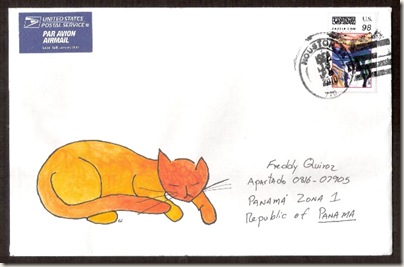 UNITED STATES
POSTAL SERVICE
PAR AVION
AIRMAIL
U.S.
98
HOUSTON
Freddy Quiroz
Apartado 0816-07905
PANAMÁ ZONA 1
Republic of PANAMA